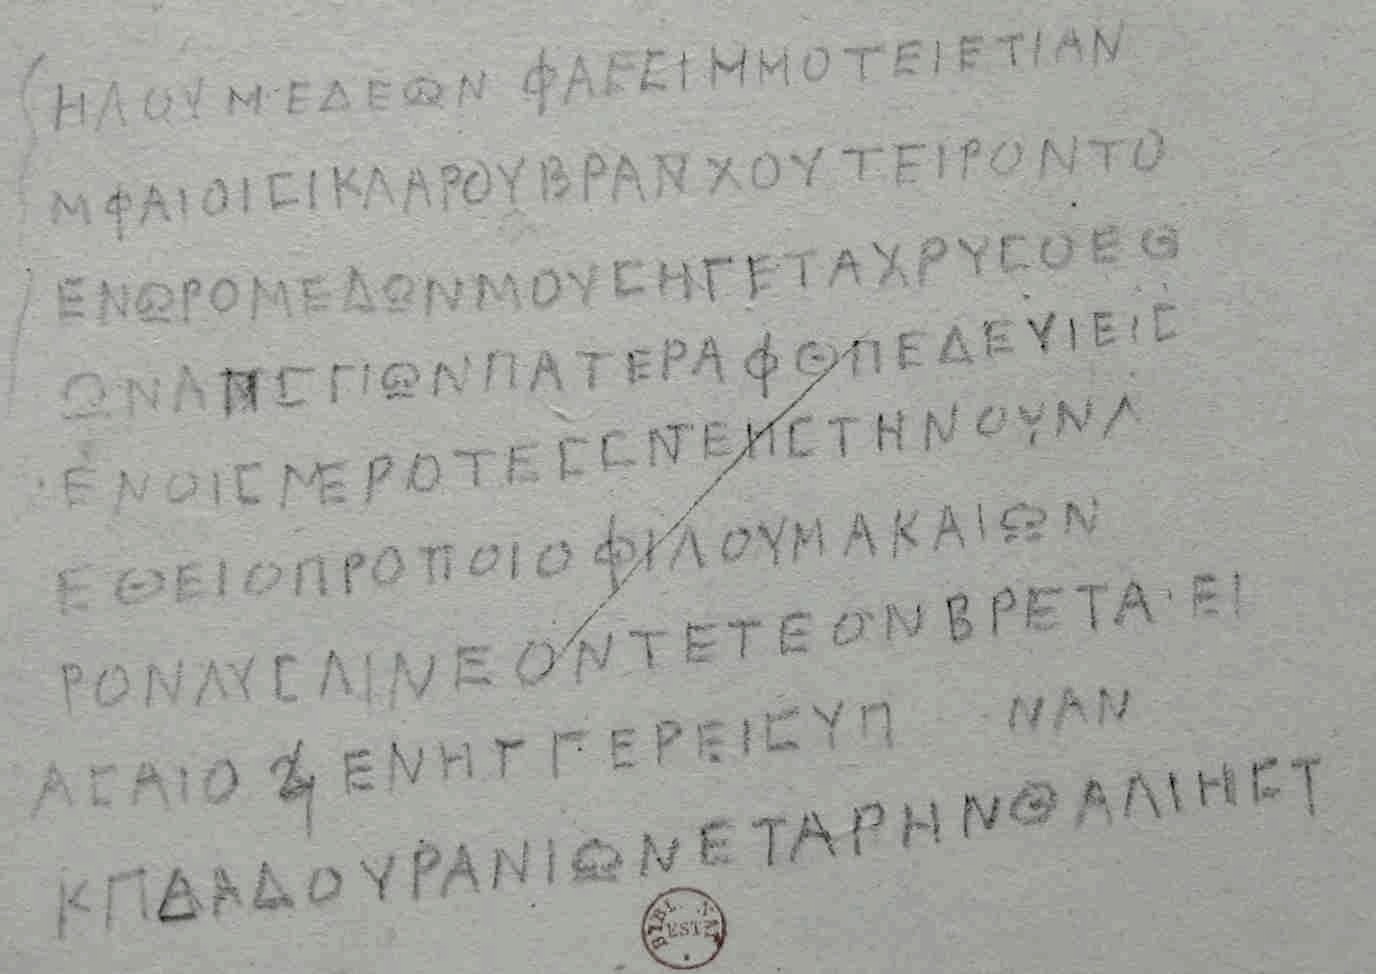 ΗΛΟΥΜΕΔΕΩΝ ΦΑΕΣΙΜΜΟΤΕΙΕΤΙΑΝ
ΜΦΑΙΟΙΣΙΚΛΑΡΟΥΒΡΑΝΧΟΥΤΕΙΡΟΝΤΟ
ΕΝΩΡΟΜΕΔΩΝΜΟΥΣΗΓΕΤΑΧΡΥΣΟΕΘ
ΩΝΑΠΣΓΙΩΝΠΑΤΕΡΑΦΘΠΕΔΕΥΙΕΙΣ
ΕΝΟΙΣΜΕΡΟΤΕΣΣΝΕΠΣΤΗΝΟΥΝΛ
ΕΘΕΙΟΠΡΟΠΟΙΟΦΙΛΟΥΜΑΚΑΙΩΝ
ΡΟΝΛΥΣΛΙΝΕΟΝΤΕΤΕΟΝΒΡΕΤΑ·ΕΙ
ΑΣΑΙΟ ΕΝΗΓΓΕΡΕΙΣΥΠ ΝΑΝ
ΚΠΔΑΔΟΥΡΑΝΙΩΝΕΤΑΡΗΝΘΑΛΙΗΣΤ
BIBL NAT
EST